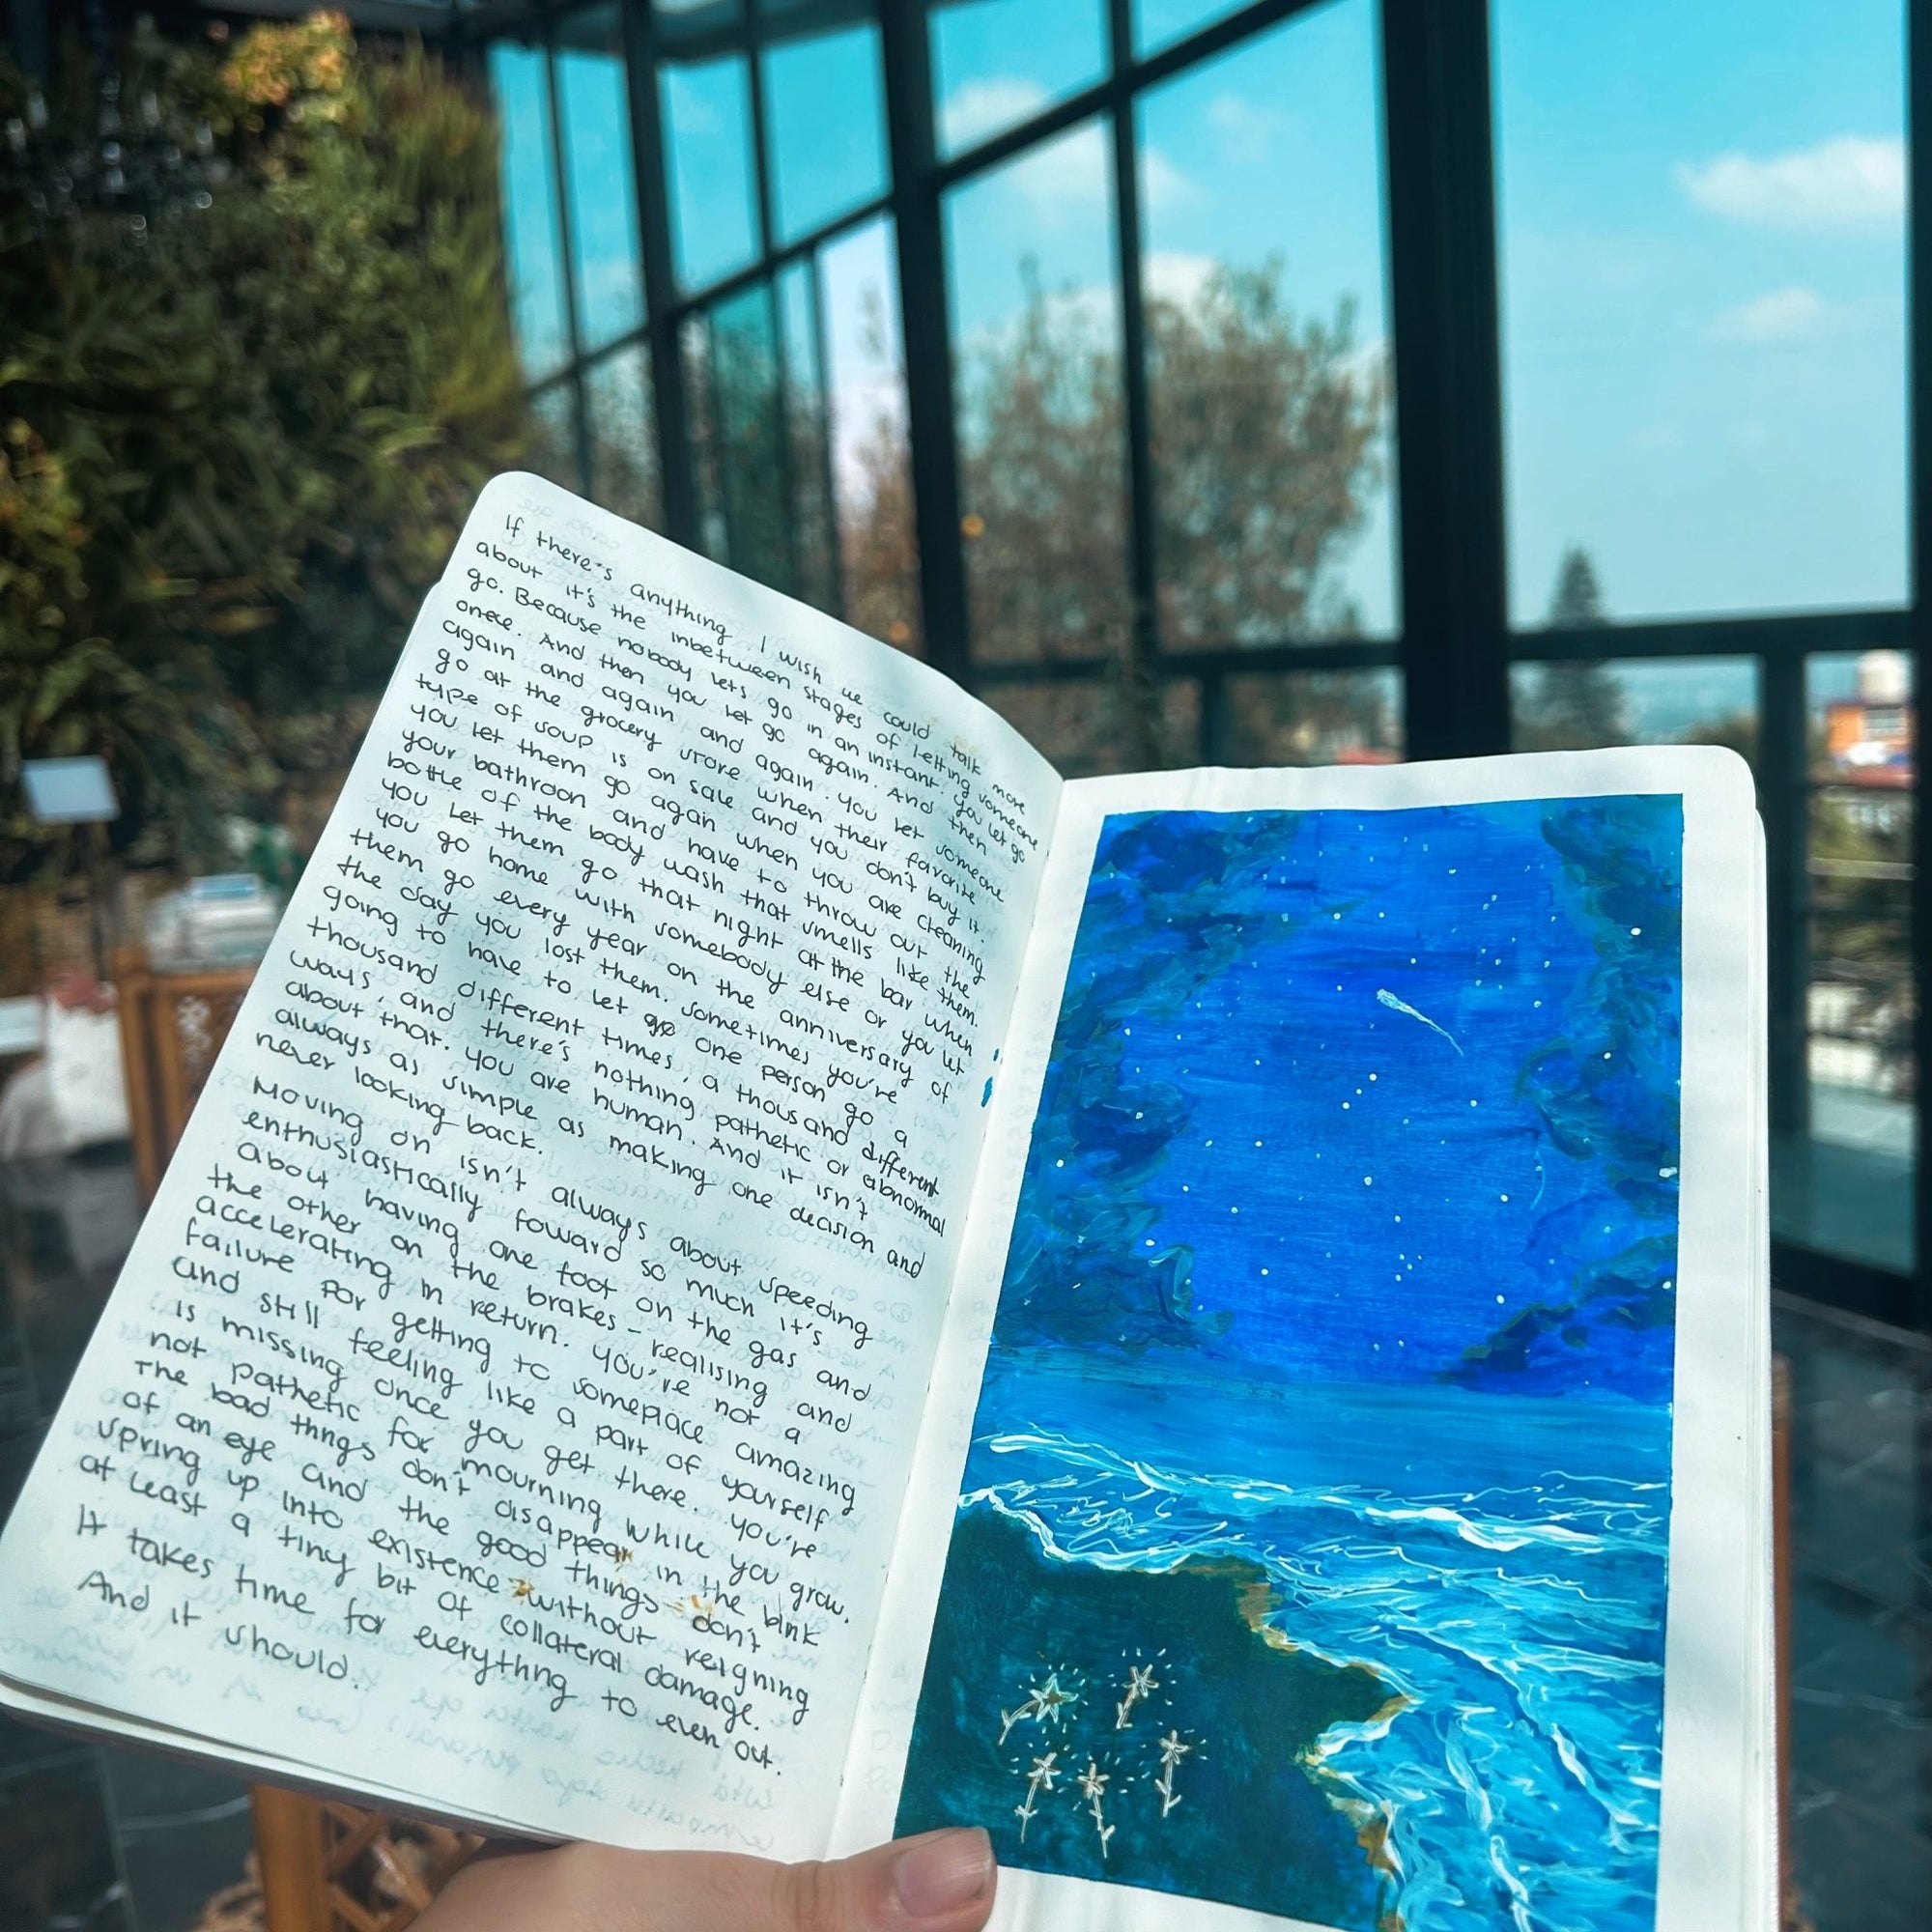 If there's anything I wish we could talk more
about it's the inbetween stages of letting someone
go. Because nobody lets go in an instant. You let go
once. And then you let go again. And then
again and again and again. You let someone
go at the grocery store when their favorite
type of soup is on sale and you don't buy it.
you let them go again when you are cleaning
your bathroom and have to throw out the
bottle of the body wash that smells like them.
you let them go that night at the bar when
you go home with somebody else or you let
them go every year on the anniversary of
the day you lost them. Sometimes you're
going to have to let go one person go a
thousand different times, a thousand different
ways, and there's nothing pathetic or abnormal
about that. You are human. And it isn't
always as simple as making one decision and
never looking back.
Moving on isn't always about speeding
enthusiastically foward so much it's
about having one foot on the gas and
the other on the brakes - realising and
accelerating in return. You're not a
failure for getting to someplace amazing
and still feeling like a part of yourself
is missing once you get there. You're
not pathetic for mourning while you grow.
The bad things don't disappear in the blink
of an eye and the good things don't
spring up into existence without reigning
at least a tiny bit of collateral damage.
It takes time for everything to even out.
And it should.